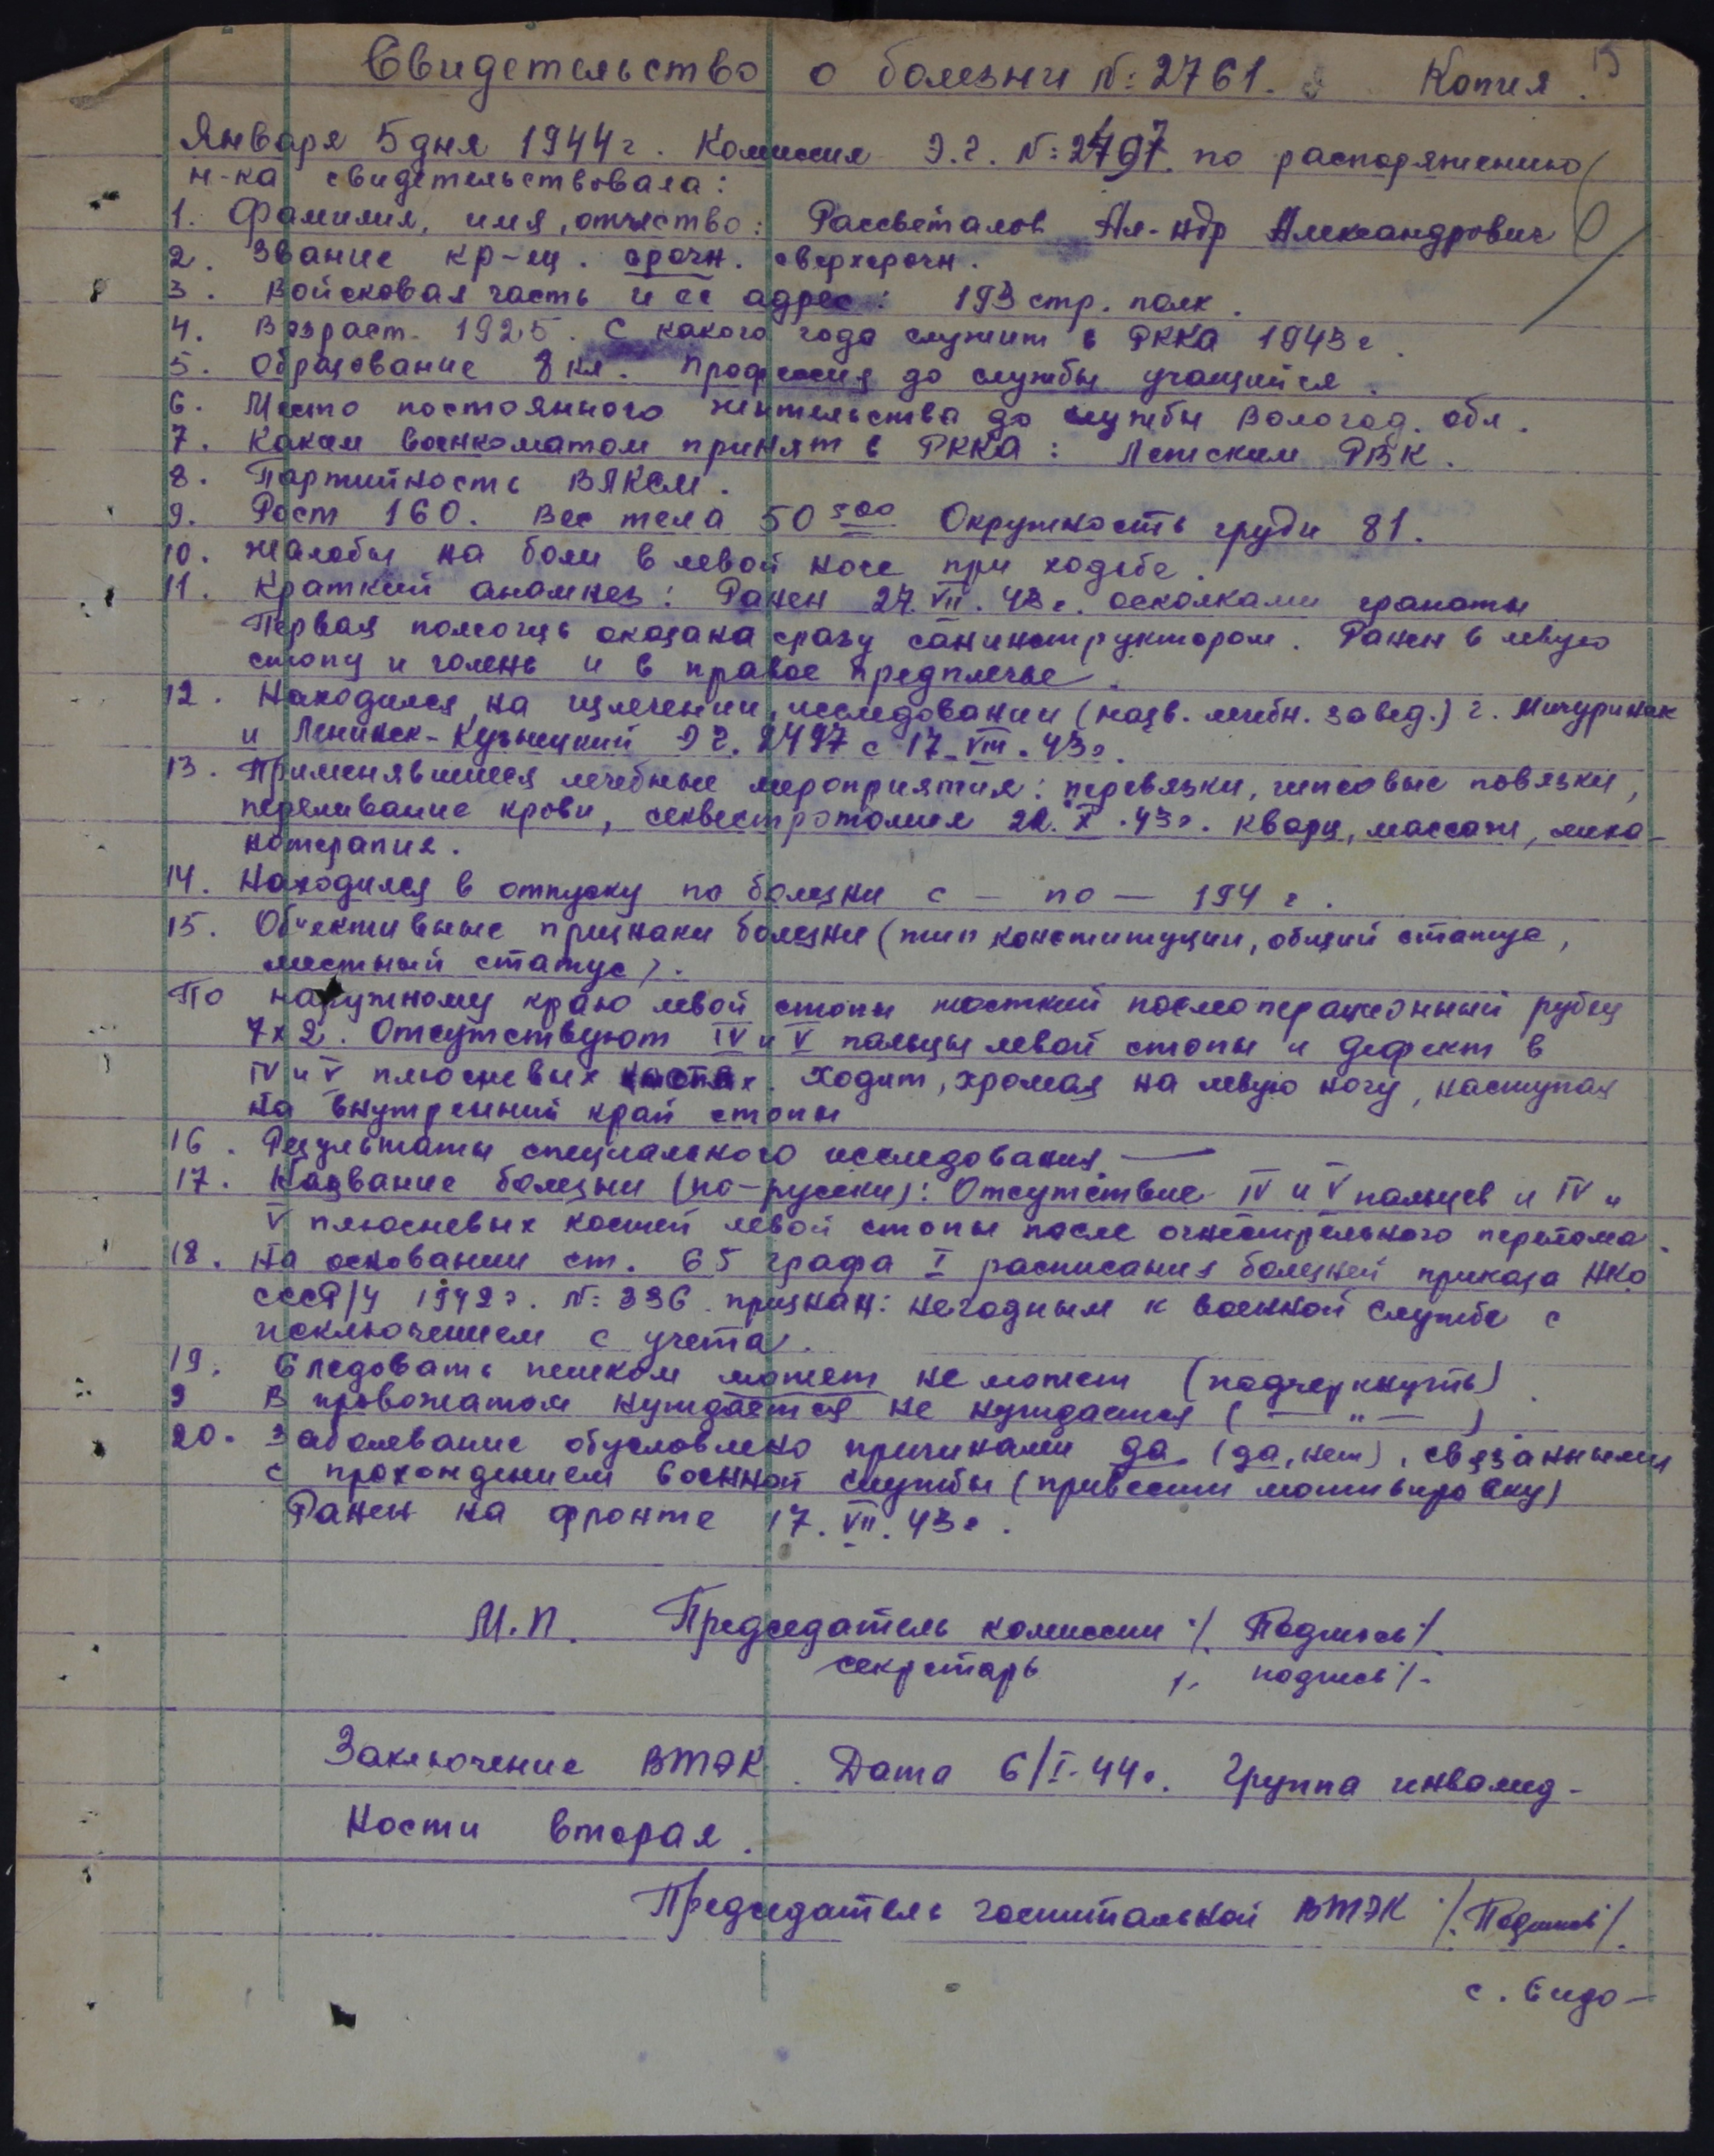 15
Свидетельство о болезни №: 2761. Копия.
Января 5 дня 1944 г. Комиссия Э.г. №: 2497 по распоряжению
н-ка свидетельствовала:
1. Фамилия, имя, отчество: Рассветалов Ал-ндр Александрович
2. Звание кр-ец. срочн. сверхсрочн.
3. Войсковая часть и ее адрес: 193 стр. полк.
4. Возраст 1925. С какого года служит в РККА 1943 г.
5. Образование 8 кл. Профессия до службы учащийся.
6. Место постоянного жительства до службы Вологод. обл.
7. Каким военкоматом принят в РККА: РВК.
8. Партийность ВЛКСМ.
9. Рост 160. Вес тела 50 500 Окружность груди 81.
10. Жалобы на боли в левой ноге при ходьбе.
11. Краткий анамнез: Ранен 27. VII. 43 г. осколками гранаты
Первая помощь оказана сразу санинструктором. Ранен в левую
стопу и голень и в правое предплечье.
12. Находился на излечении, исследовании (назв. лечебн. завед.) г. Мичуринск
и Ленинск-Кузнецкий Э г. 2497 с 17. VIII. 43 г.
13. Применявшиеся лечебные мероприятия: перевязки, гипсовые повязки,
переливание крови, секвестротомия 21. X. 43 г. кварц, массаж, меха-
нотерапия.
14. Находился в отпуску по болезни с — по — 194 г.
15. Об'ективные признаки болезни (тип конституции, общий статус,
местный статус).
По наружному краю левой стопы жесткий послеоперационный рубец
7х2. Отсутствуют IV и V пальцы левой стопы и дефект в
IV и V плюсневых костях. Ходит, хромая на левую ногу, наступая
на внутренний край стопы
16. Результаты специального исследования —
17. Название болезни (по-русски): Отсутствие IV и V пальцев и IV и
V плюсневых костей левой стопы после огнестрельного перелома.
18. На основании ст. 65 графа I расписания болезней приказа НКО
СССР/у 1942 г. №: 336 признан: негодным к военной службе с
исключением с учета.
19. Следовать пешком может не может (подчеркнуть)
9 В провожатом нуждается не нуждается ( — " — )
20. Заболевание обусловлено причинами да (да, нет), связанными
с прохождением военной службы (привести мотивировку)
Ранен на фронте 17. VII. 43 г.
М.П. Председатель комиссии /. Подпись /.
секретарь /. подпись /.
Заключение ВТЭК. Дата 6/I-44 г. Группа инвалид-
ности вторая.
Председатель госпитальной ВТЭК /. Подпись /.